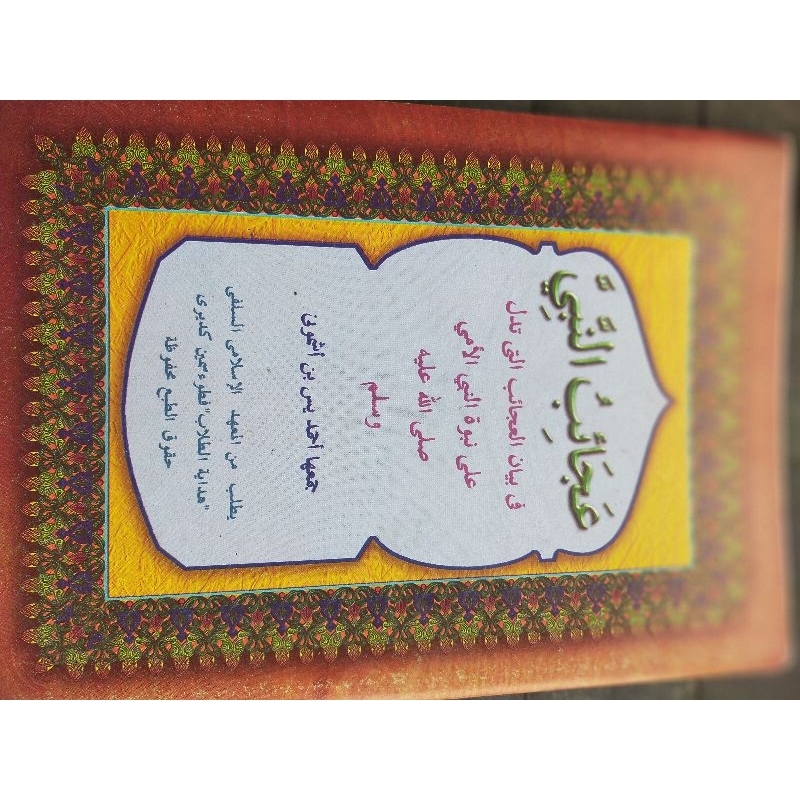 عَجَائِبُ النَّبِيِّ
فى بيان العجائب التى تدل
على نبوة النبي الأمي
صلى الله عليه
وسلم
جمعها أحمد يس بن أشمونى
يطلب من المعهد الإسلامى السلفى
"هداية الطلاب" فطوء سجين كديرى
حقوق الطبع محفوظة